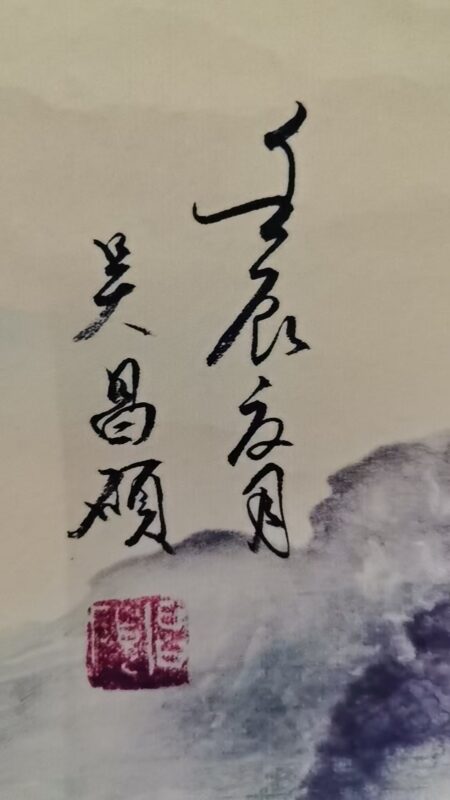 壬辰夏月
吴昌硕